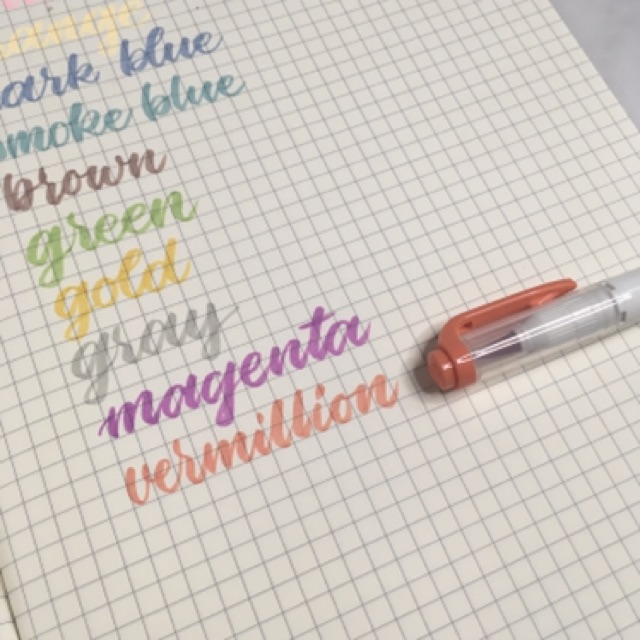 ark blue
smoke blue
brown
green
gold
gray
magenta
vermillion